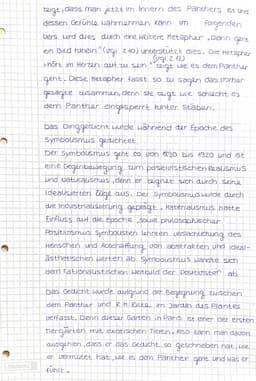 zeigt, dass man jetzt im Innern des Panthers ist und
dessen Gefühle wahrnehmen kann. Im folgenden
Vers wird dies durch eine weitere Metapher „Dann geht
ein Bild hinein" (vgl. Z.10) unterstützt dies. Die Metapher
„hört im Herzen auf zu sein" (vgl. Z.12) zeigt wie es dem Panther
geht. Diese Metapher fasst so zu sagen das vorher
gesagte zusammen, denn sie zeigt wie schlecht es
dem Panther eingesperrt hinter Stäben.
Das Dinggedicht wurde während der Epoche des
Symbolismus gedichtet.
Der Symbolismus geht ca von 1890 bis 1920 und ist
eine Gegenbewegung zum Realismus
und Naturalismus, denn er zeignet sich durch seine
idealisierten Züge aus. Der Symbolismus wurde durch
die Industrialisierung geprägt. Materialismus hatte
Einfluss auf die Epoche, sowie philosophischer
Positivismus. Symbolisten lehnten
Menschen und Abschaffung von abstrakten und ideal-
ästhetischen Werten ab. Symbolismus wandte sich
dem rationalistischen Weltbild der ab.
Das Gedicht wurde aufgrund der Begegnung zwischen
dem Panther und R.M. Rilke im Jardin des Plantes
verfasst. Denn dieser Garten in Paris ist einer der ersten
Tiergärten mit exotischen Tieren. Also kann man davon
ausgehen, dass er das Gedicht so geschrieben hat, wie
er vermutet hat, wie es dem Panther geht und was er
fühlt.